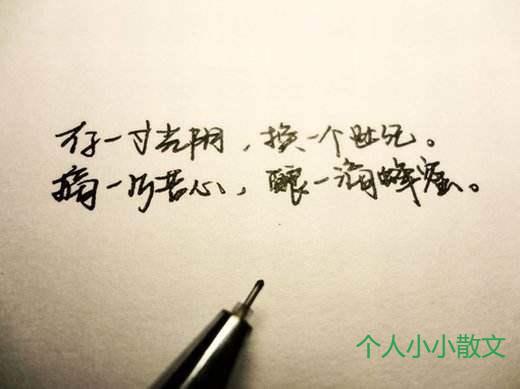 存一寸光阴，换一个世纪。
摘一苦心，酿一滴蜂蜜。
个人小小散文